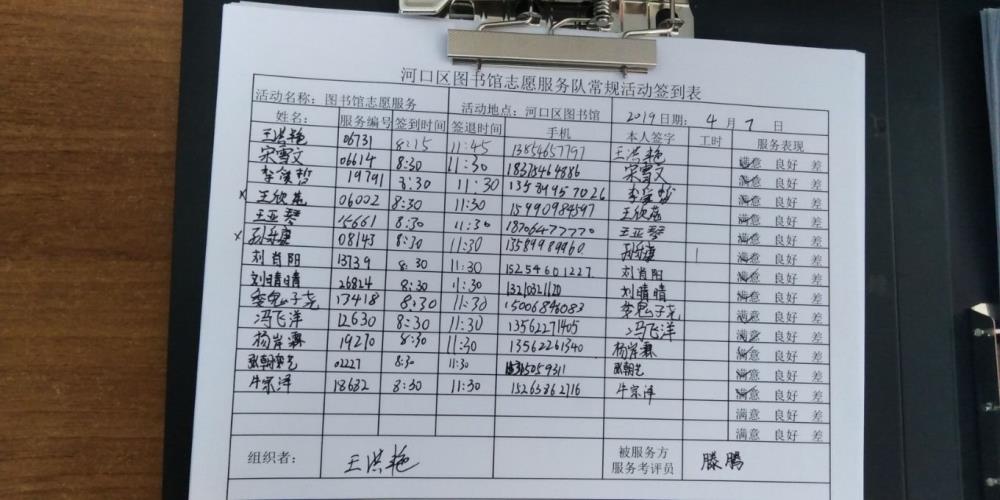 河口区图书馆志愿服务队常规活动签到表
活动名称：图书馆志愿服务 活动地点：河口区图书馆 2019日期：4月7日
姓名： 服务编号 签到时间 签退时间 手机 本人签字 工时 服务表现
王洪艳 06731 8:15 11:45 13854657797 王洪艳 满意 良好 差
宋雪文 06614 8:30 11:30 18375464886 宋雪文 满意 良好 差
19791 8:30 11:30 13589957026 满意 良好 差
x 王欣苑 06002 8:30 11:30 15990984597 王欣苑 满意 良好 差
王亚琴 15661 8:30 11:30 18706477770 王亚琴 满意 良好 差
x 08143 8:30 11:30 13589989960 满意 良好 差
刘肖阳 13739 8:30 11:30 15254601227 刘肖阳 满意 良好 差
刘晴晴 26824 8:30 11:30 刘晴晴 满意 良好 差
17418 8:30 11:30 15006846083 满意 良好 差
冯飞洋 12630 8:30 11:30 13562271405 冯飞洋 满意 良好 差
杨岸霖 19270 8:30 11:30 13562261340 杨岸霖 满意 良好 差
02227 8:30 11:30 满意 良好 差
牛宗泽 18632 8:30 11:30 15263862716 牛宗泽 满意 良好 差
满意 良好 差
满意 良好 差
组织者： 王洪艳 被服务方 滕腾
服务考评员